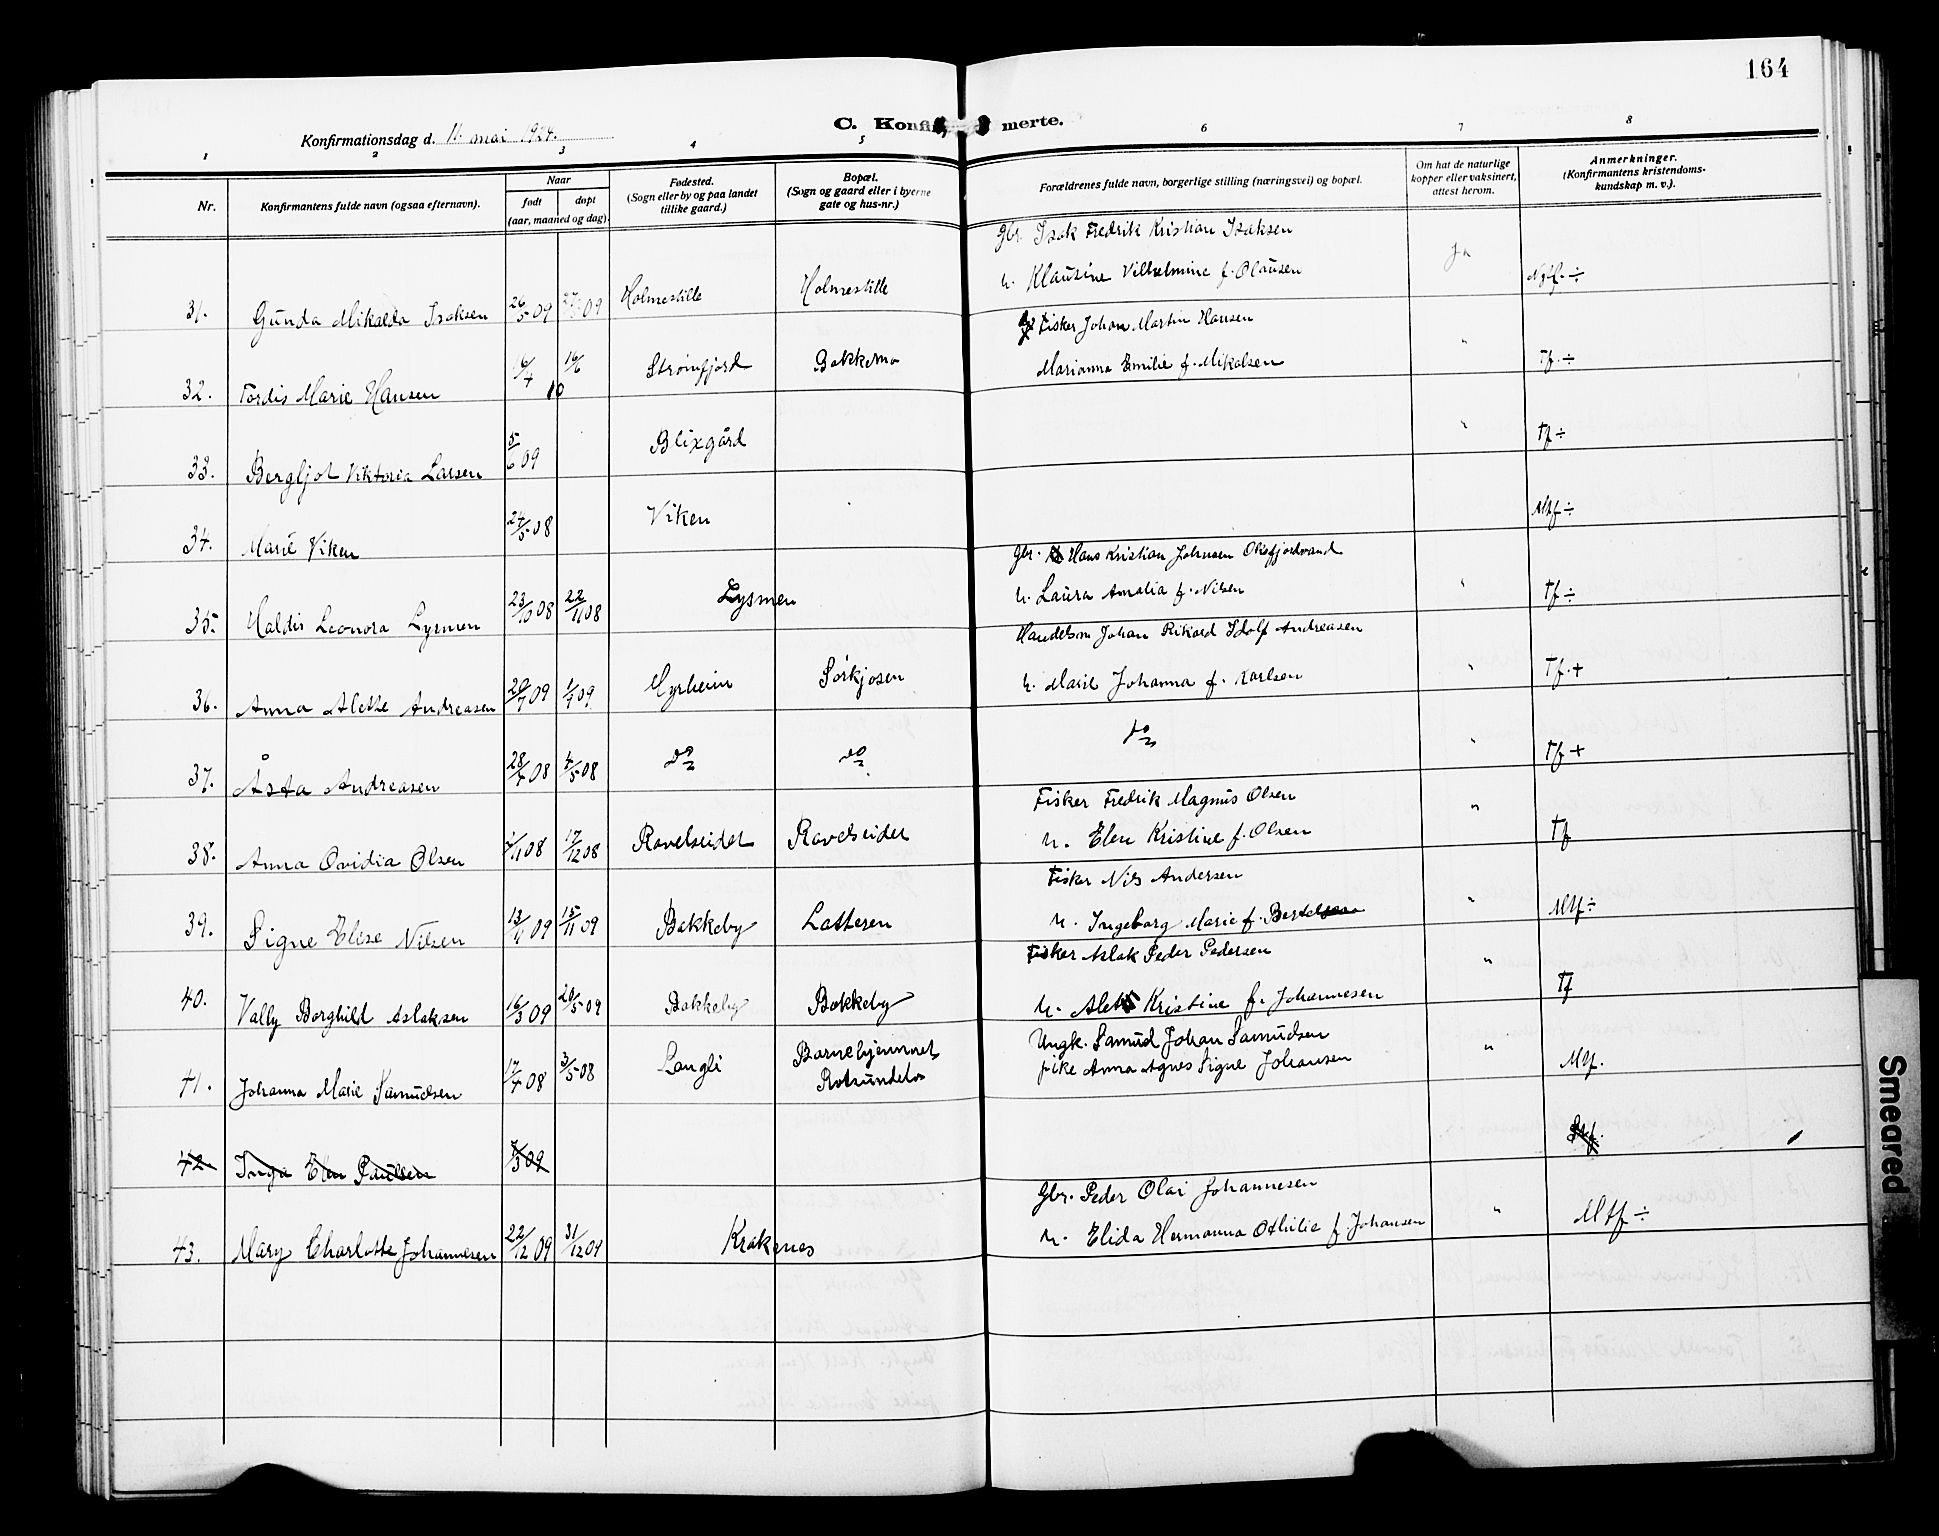 164
C. Konfirmerte.
Konfirmationsdag d. 11. mai 1924.
1 2 3 4 5 6 7 8
Nr.
Konfirmantens fulde navn (ogsaa efternavn).
Naar
født døpt
(aar, maaned og dag).
Fødested.
(Sogn eller by og paa landet
tillike gaard.)
Bopæl.
(Sogn og gaard eller i byerne
gate og hus-nr.)
Forældrenes fulde navn, borgerlige stilling (næringsvei) og bopæl.
Om hat de naturlige
kopper eller vaksinert,
attest herom.
Anmerkninger.
(Konfirmantens kristendoms-
kundskap m. v.).
Gbr. Isak Fredrik Kristian Isaksen
31. Gunda Mikalda Isaksen 26/5 09 09 Holmestille Holmestille h. Klausine Vilhelmine f. Olausen Ja Ntf. ÷
Fisker Johan Martin Hansen
32. Tordis Marie Hansen 16/4 16/6 10 Strømfjord Bakkemo Marianna Emilie f. Mikalsen " Tf. ÷
33. Bergljot Viktoria Larsen 5/6 09 Blixgård " Tf ÷
34. Marie Viken 24/5 08 Viken Mtf ÷
Gbr. Hans Kristian Johnsen Oksfjordvand
35. Haldis Leonora Lysmen 23/10 08 22/11 08 Lysmen h. Laura Amalia f. Nilsen " Tf ÷
Handelsm Johan Rikard Idolf Andreasen
36. Anna Alethe Andreasen 20/7 09 1/9 09 Myrheim Sørkjosen h. Marie Johanna f. Karlsen " Tf. +
37. Åsta Andreasen 28/4 08 5 08 do do do " Tf +
Fisker Fredrik Magnus Olsen
38. Anna Ovidia Olsen 1/11 08 17/12 08 Ravelseidet Ravelseidet h. Elen Kristine f. Olsen " Tf
Fisker Nils Andersen
39. Signe Elise Nilsen 13/11 09 15/11 09 Bakkeby Lattesen h. Ingeborg Marie f. Bertelsen " Mtf ÷
Fisker Aslak Peder Pedersen
40. Vally Borghild Aslaksen 16/3 09 20/5 09 Bakkeby Bakkeby h. Kristine f. Johannesen " Tf
Ungk. Samuel Johan Samuelsen
41. Johanna Marie Samuelsen 17/4 08 3/5 08 Langli Barnehjemmet
Rotsundelv pike Anna Agnes Signe Johansen " Mtf.
42 Inga Elen Paulsen 3 09
Gbr. Peder Olai Johannesen
43. Mary Charlotte Johannesen 22/12 09 31/12 09 Krakenes h. Elida Hermanna Othilie f. Johansen " Mtf ÷
Smeared